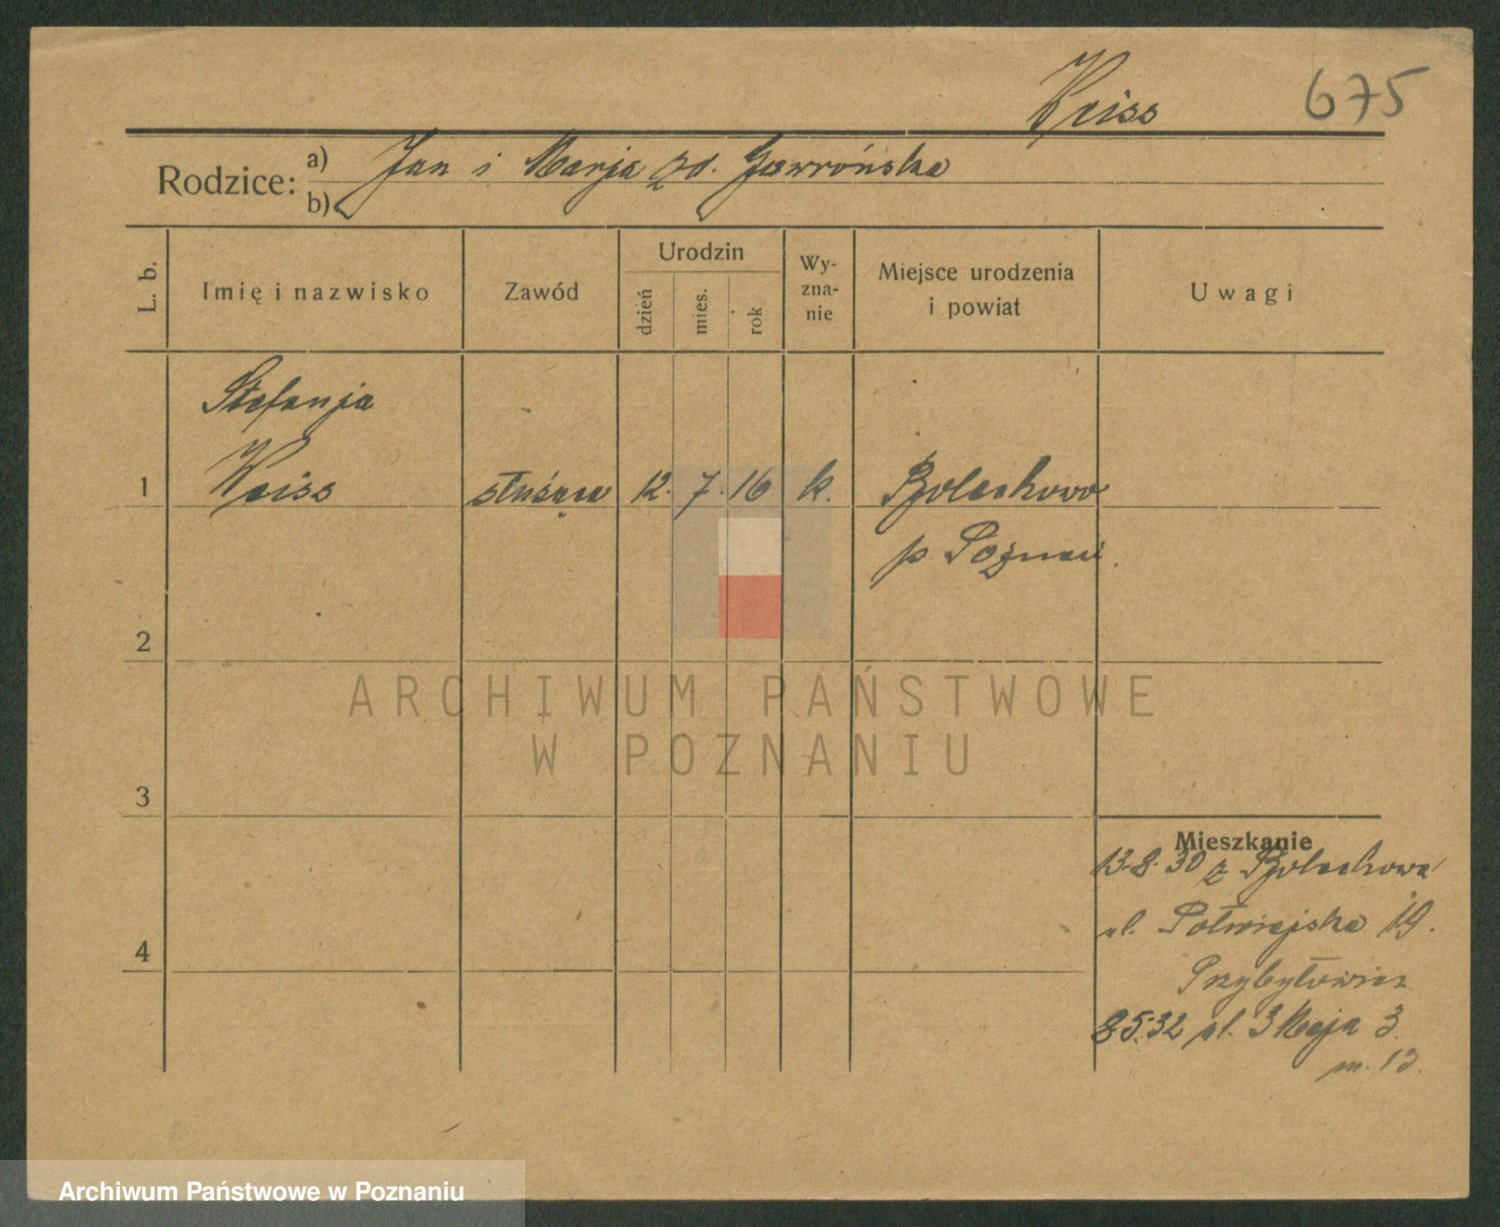 Weiss 675
Rodzice: a) Jan i Marja zd. Gawrońska
b)
L. b.
Imię i nazwisko
Zawód
Urodzin
dzień
mies.
rok
Wy-
zna-
nie
Miejsce urodzenia
i powiat
Uwagi
Stefanja
1 Weiss służąca 12. 7. 16 k. Bolechowo
p. Poznań.
2
ARCHIWUM PAŃSTWOWE
W POZNANIU
3
Mieszkanie
13.8.30 z Bolechowa
ul. Półwiejska 19.
4
Przybyłowicz
8.5.32 ul. 3 Maja 3
m. 13.
Archiwum Państwowe w Poznaniu